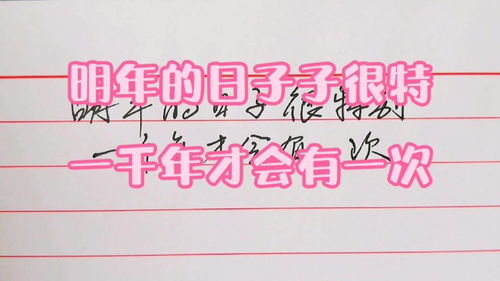 明年的日子子很特
明年的日子很特别
一千年才会有一次
一千年才会有一次